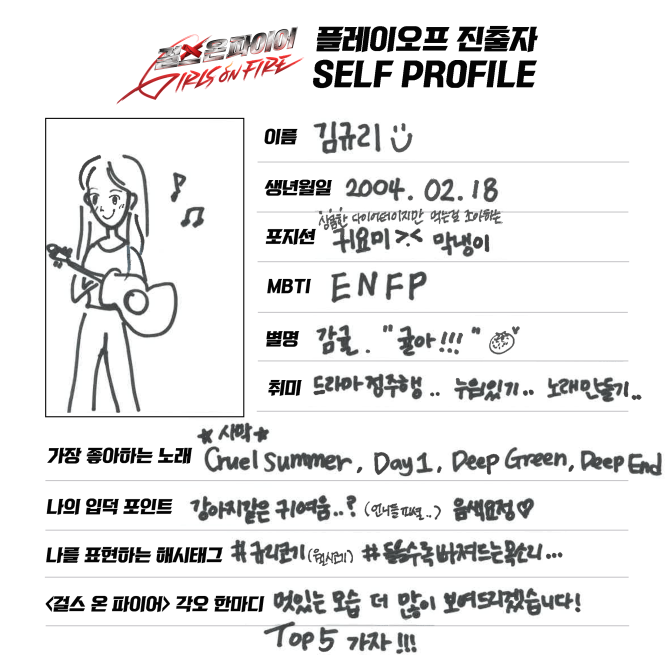 걸스온파이어 플레이오프 진출자
GIRLS ON FIRE SELF PROFILE
이름 김규리
생년월일 2004. 02. 18
상큼한 다이어터이지만 먹는걸 조아하는
포지션 귀요미 >.< 막냉이
MBTI ENFP
별명 감귤. "귤아!!!"
취미 드라마 정주행.. 누워있기.. 노래만들기..
★시작★
가장 좋아하는 노래 Cruel Summer, Day 1, Deep Green, Deep End
나의 입덕 포인트 강아지같은 귀여움..? (언니들피셜..) 음색요정♡
나를 표현하는 해시태그 #규리코기 #들을수록빠져드는목소리...
<걸스 온 파이어> 각오 한마디 멋있는 모습 더 많이 보여드리겠습니다!
TOP 5 가자!!!